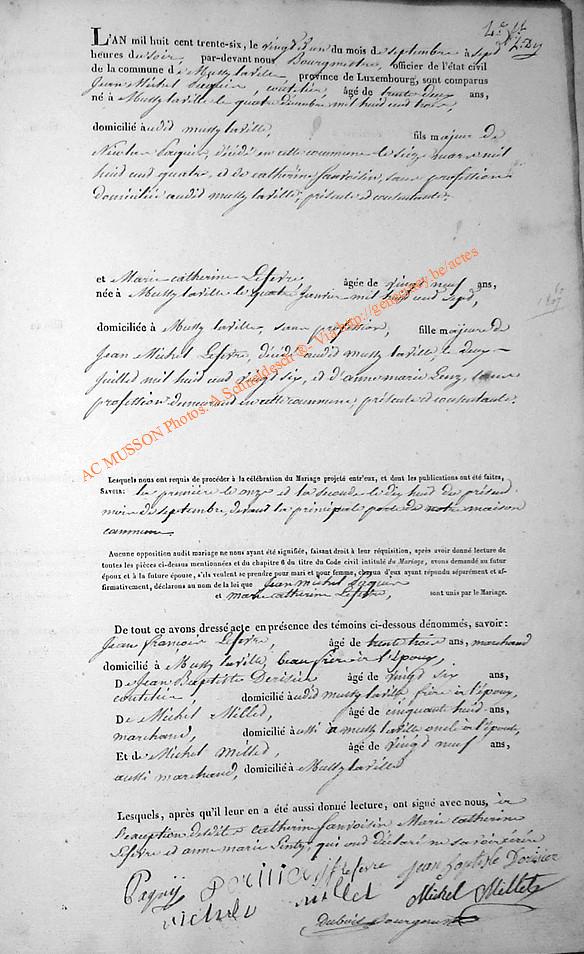 L'AN mil huit cent trente-six, le vingt un du mois de septembre à sept
heures du soir, par-devant nous Bourgmestre, officier de l'état civil
de la commune de Mussy laville, province de Luxembourg, sont comparus
Jean Michel, coutelier, âgé de trente deux ans,
né à Mussy laville le quatre décembre mil huit cent trois,
domicilié audit mussy laville, fils majeur de
décédé en cette commune le seize mars mil
huit cent quatre, et de catherine fauvoisin, sans profession
domiciliée audit mussy laville, présente et consentante.
et Marie catherine Lefevre, âgée de vingt neuf ans,
née à Mussy laville le quatre Janvier mil huit cent sept,
domiciliée à Mussy laville, sans profession, fille majeure de
Jean Michel Lefevre, décédé audit mussy laville le deux
Juillet mil huit cent vingt six, et d'anne marie, sans
profession demeurant en cette commune, présente et consentante.
Lesquels nous ont requis de procéder à la célébration du Mariage projeté entr'eux, et dont les publications ont été faites,
SAVOIR: la première le onze et la seconde le dix huit du présent
mois de septembre, devant la principale porte de notre maison
commune.
Aucune opposition audit mariage ne nous ayant été signifiée, faisant droit à leur réquisition, après avoir donné lecture de
toutes les pièces ci-dessus mentionnées et du chapitre 6 du titre du Code civil intitulé du Mariage, avons demandé au futur
époux et à la future épouse, s'ils veulent se prendre pour mari et pour femme, chacun d'eux ayant répondu séparément et af-
firmativement, déclarons au nom de la loi que Jean michel
et marie catherine Lefevre, sont unis par le Mariage.
De tout ce avons dressé acte en présence des témoins ci-dessous dénommés, savoir:
Jean françois Lefevre, âgé de trente trois ans, marchand
domicilié à Mussy laville, beau frère à l'époux,
De Jean Baptiste Derisier âgé de vingt six ans,
coutelier, domicilié audit mussy laville frère à l'époux,
De Michel Millet, âgé de cinquante huit ans,
marchand, domicilié aussi à mussy laville oncle à l'épouse,
Et de Michel Millet, âgé de vingt neuf ans,
aussi marchand, domicilié à Mussy laville
Lesquels, après qu'il leur en a été aussi donné lecture, ont signé avec nous, à
l'exception desdits catherine fauvoisin Marie catherine
Lefevre et anne marie, qui ont déclaré ne savoir écrire
Lefevre Jean baptiste Dorisier
millet Michel Millet
Bourgmestre
AC MUSSON Photos. A Schneidesch ®- Via http://geneanney.be/actes